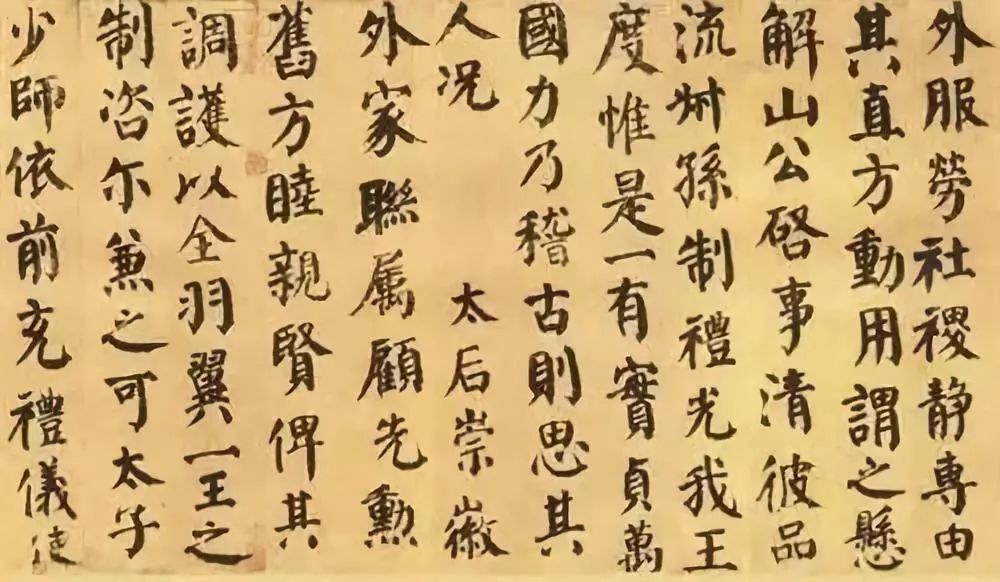 外服勞社稷静專由
其直方動用謂之懸
解山公啓事清彼品
流州孫制禮光我王
度惟是一有實貞萬
國力乃稽古則思其
人况 太后崇徽
外家聯属顧先勳
舊方睦親賢俾其
調護以全羽翼一王之
制咨尔兼之可太子
少師依前充禮儀使